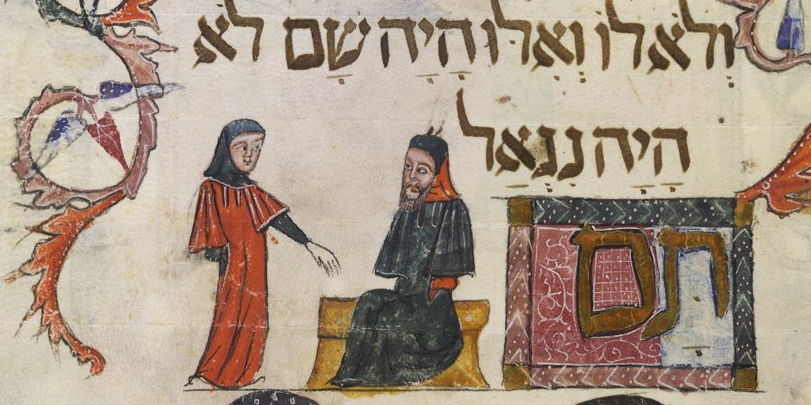 וְלֹא לוֹ וְאִלּוּ הָיָה שָׁם לֹא
הָיָה נִגְאָל
תם